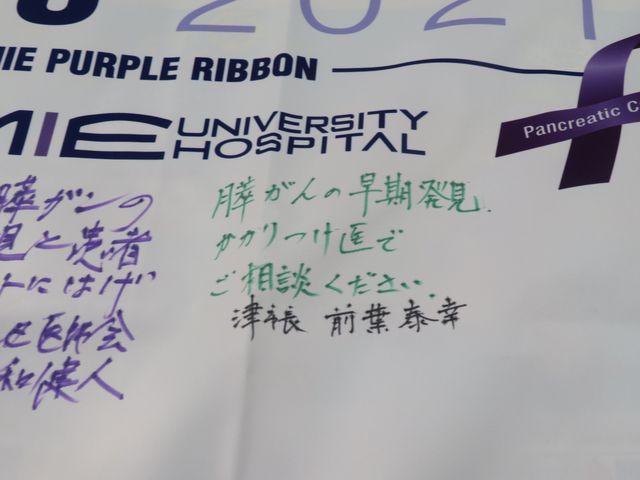 2021
MIE PURPLE RIBBON
MIE UNIVERSITY HOSPITAL
Pancreatic C
膵がんの早期発見.
かかりつけ医で
ご相談ください.
津市長 前葉泰幸
膵ガンの
見と患者
トにはげ
医師会
和健人